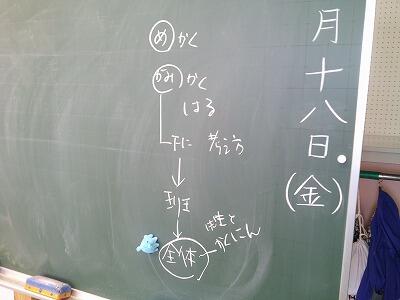 月十八日(金)
めかく
かみかく
はる
下に 考え方
班
全体
かくにん